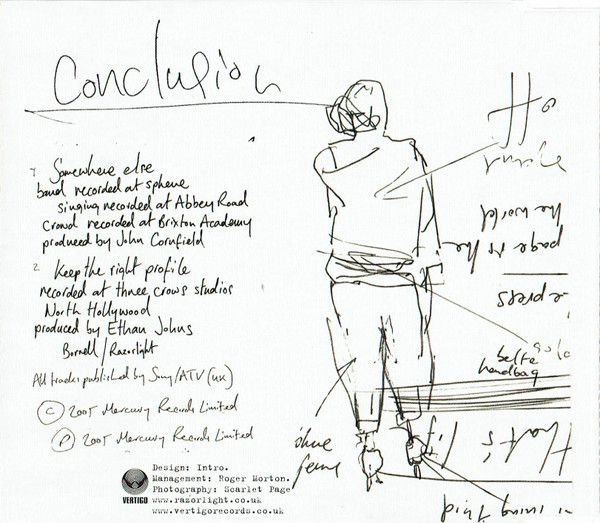 Conclusion
1 Somewhere else
band recorded at sphere
singing recorded at Abbey Road
crowd recorded at Brixton Academy
produced by John Cornfield
2 Keep the right profile
recorded at three crows studios
North Hollywood
produced by Ethan Johns
Borrell / Razorlight
All tracks published by Sony/ATV (UK)
C 2005 Mercury Records Limited
P 2005 Mercury Records Limited
VERTIGO
Design: Intro.
Management: Roger Morton.
Photography: Scarlet Page
www.razorlight.co.uk
www.vertigorecords.co.uk
the world
page is the
belte
handbag
that's